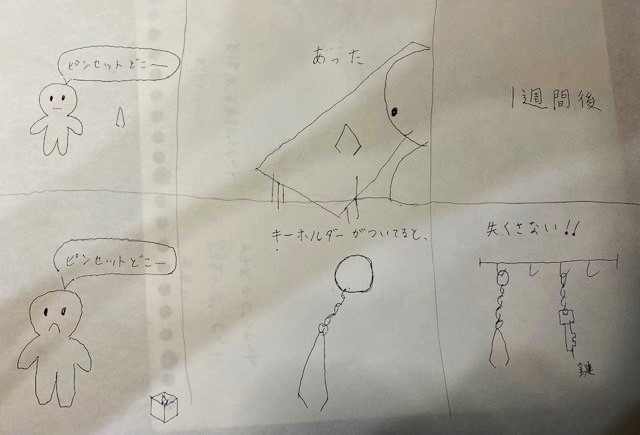 ピンセットどこー
あった
1週間後
ピンセットどこー
キーホルダーがついてると、
失くさない!!
鍵